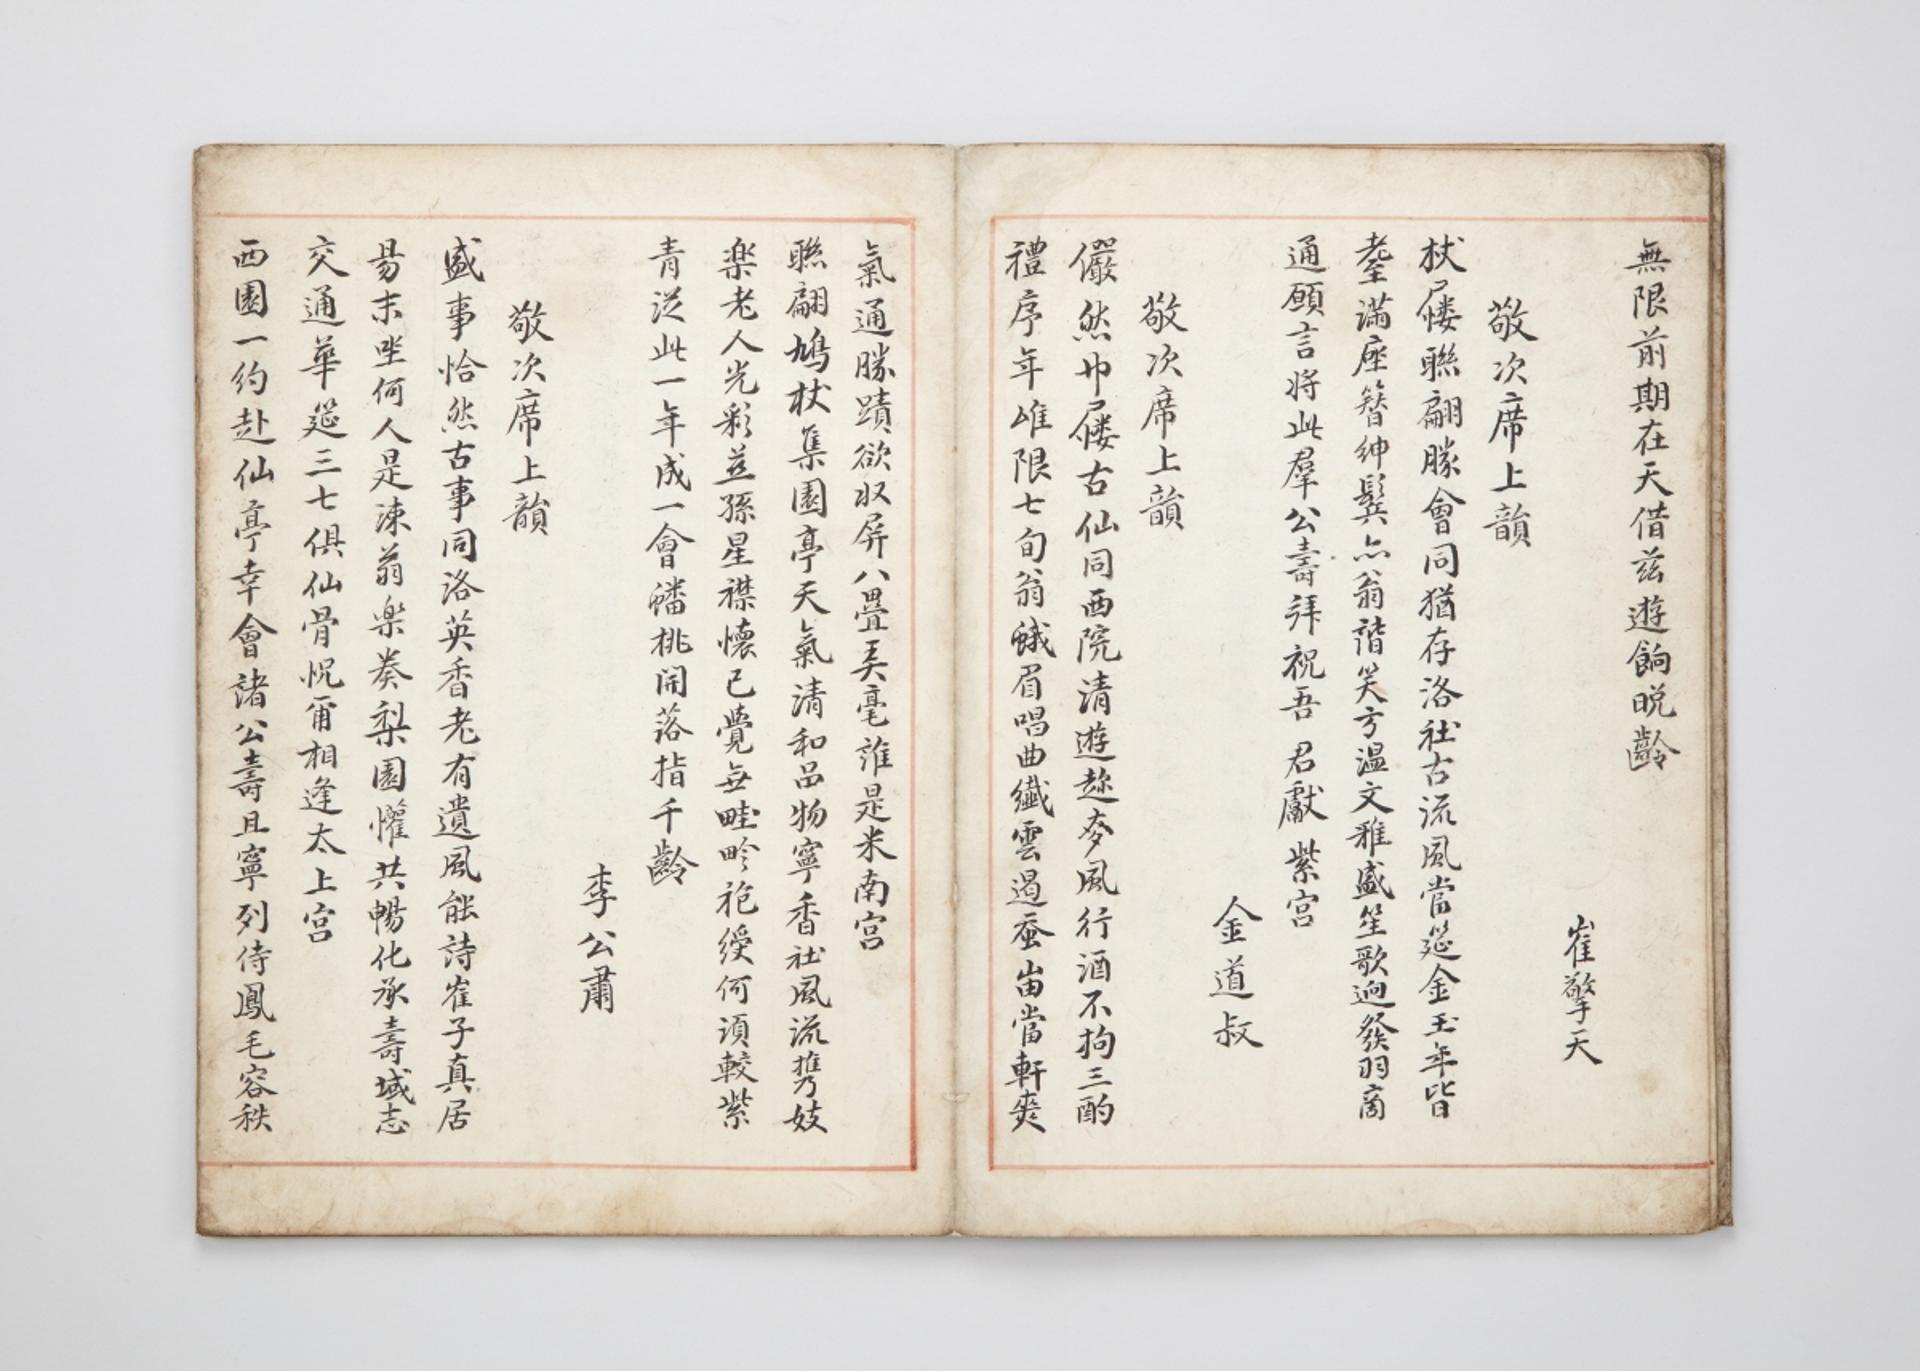 無限前期在天借兹遊餉晩齡
崔擎天
敬次席上韻
杖屨聯翩勝會同猶存洛社古流風當筵金玉年皆
耋滿座簪紳鬓亦翁諧笑方溫文雅盛笙歌迥發羽商
通願言将此羣公壽拜祝吾君獻紫宮
金道叔
敬次席上韻
儼然巾屨古仙同西院清遊趂麥風行酒不拘三酌
禮序年唯限七旬翁蛾眉唱曲纖雲遏蚕崮當軒爽
氣通勝蹟欲収屏八疊美毫誰是米南宮
聯翩鳩杖集園亭天氣清和品物寧香社風流携妓
楽老人光彩並孫星襟懷已覺無畦畛袍綬何須較紫
青従此一年成一會蟠桃開落指千齡
李公肅
敬次席上韻
盛事恰然古事同洛英香老有遺風能詩崔子真居
易末唑何人是涑翁楽奏梨園懽共暢化承壽域志
交通華筵三七俱仙骨怳甭相逢太上宮
西園一約赴仙亭幸會諸公壽且寧列侍鳳毛容秩